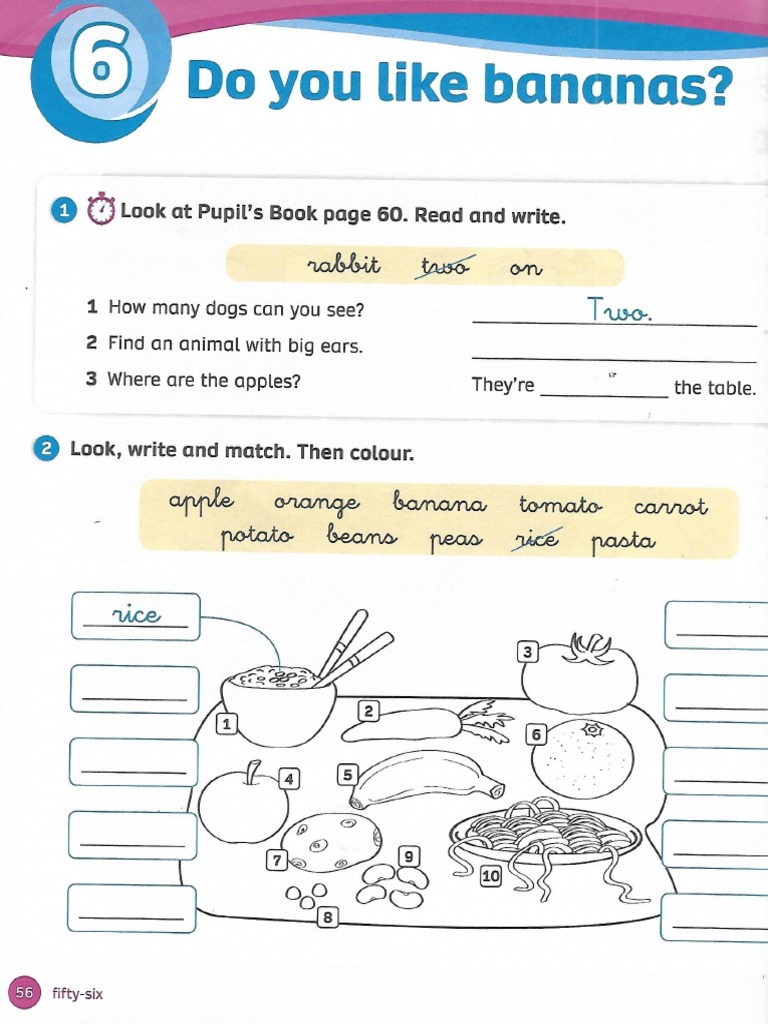 6
Do you like bananas?
1 Look at Pupil's Book page 60. Read and write.
rabbit two on
1 How many dogs can you see? Two.
2 Find an animal with big ears.
3 Where are the apples? They're ____________ the table.
2 Look, write and match. Then colour.
apple orange banana tomato carrot
potato beans peas rice pasta
rice
3
2
1
6
5
4
9
7
10
8
56 fifty-six